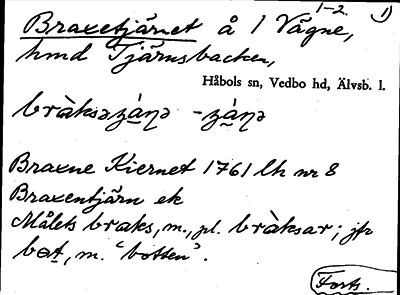 1-2. 1)
Braxetjärnet å 1 Vägne,
hmd Tjärnsbacken,
Håbols sn, Vedbo hd, Älvsb. l.
bràksəzá̱ṇə -zá̱ṇə
Braxne Kiernet 1761 lh nr 8
Braxentjärn ek
Målets braks, m., pl. bràksar; jfr
bɵt, m. ‘botten’.
Forts.